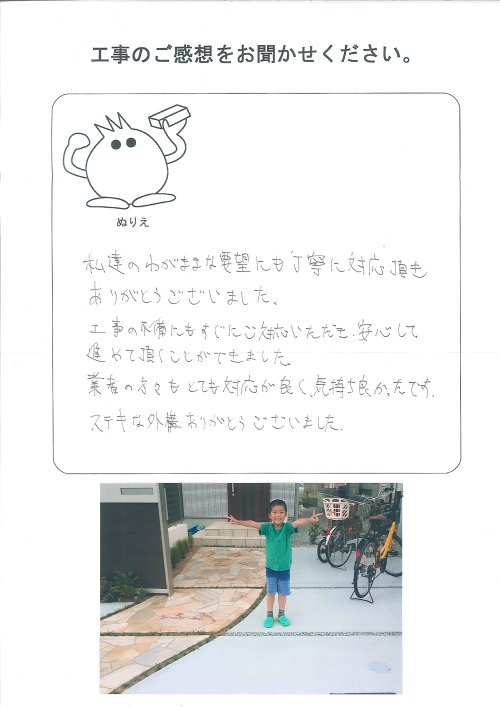 工事のご感想をお聞かせください。
ぬりえ
私達のわがままな要望にも丁寧に対応頂き
ありがとうございました。
工事の不備にもすぐにご対応いただき、安心して
進めて頂くことができました。
業者の方々もとても対応が良く、気持ち良かったです。
ステキな外構ありがとうございました。